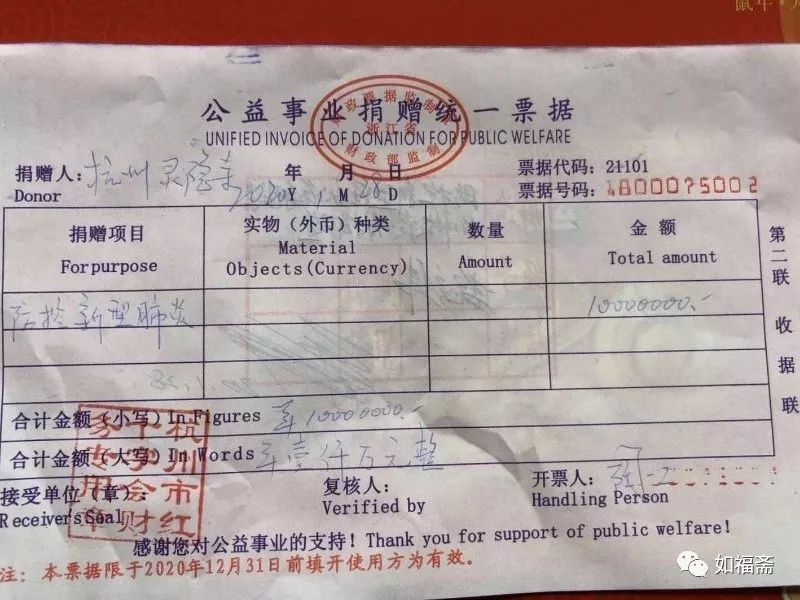 鼠年
公益事业捐赠统一票据
UNIFIED INVOICE OF DONATION FOR PUBLIC WELFARE
财政票据监制
浙江省
财政部监制
捐赠人：杭州灵隐寺 年 月 日 票据代码：21101
Donor 2020 Y 1 M 28 D 票据号码：4800075002
捐赠项目 实物（外币）种类 数量 金额
For purpose Material Objects(Currency) Amount Total amount
防控新型肺炎 10000000.-
合计金额（小写）In Figures 年10000000.-
合计金额（大写）In Words 年壹仟万元整
接受单位（章）： 复核人： 开票人：
Receiver's Seal Verified by Handling Person
杭州市红十字会财务专用章
感谢您对公益事业的支持！Thank you for support of public welfare!
注：本票据限于2020年12月31日前填开使用方为有效。
第二联 收据联
如福斋